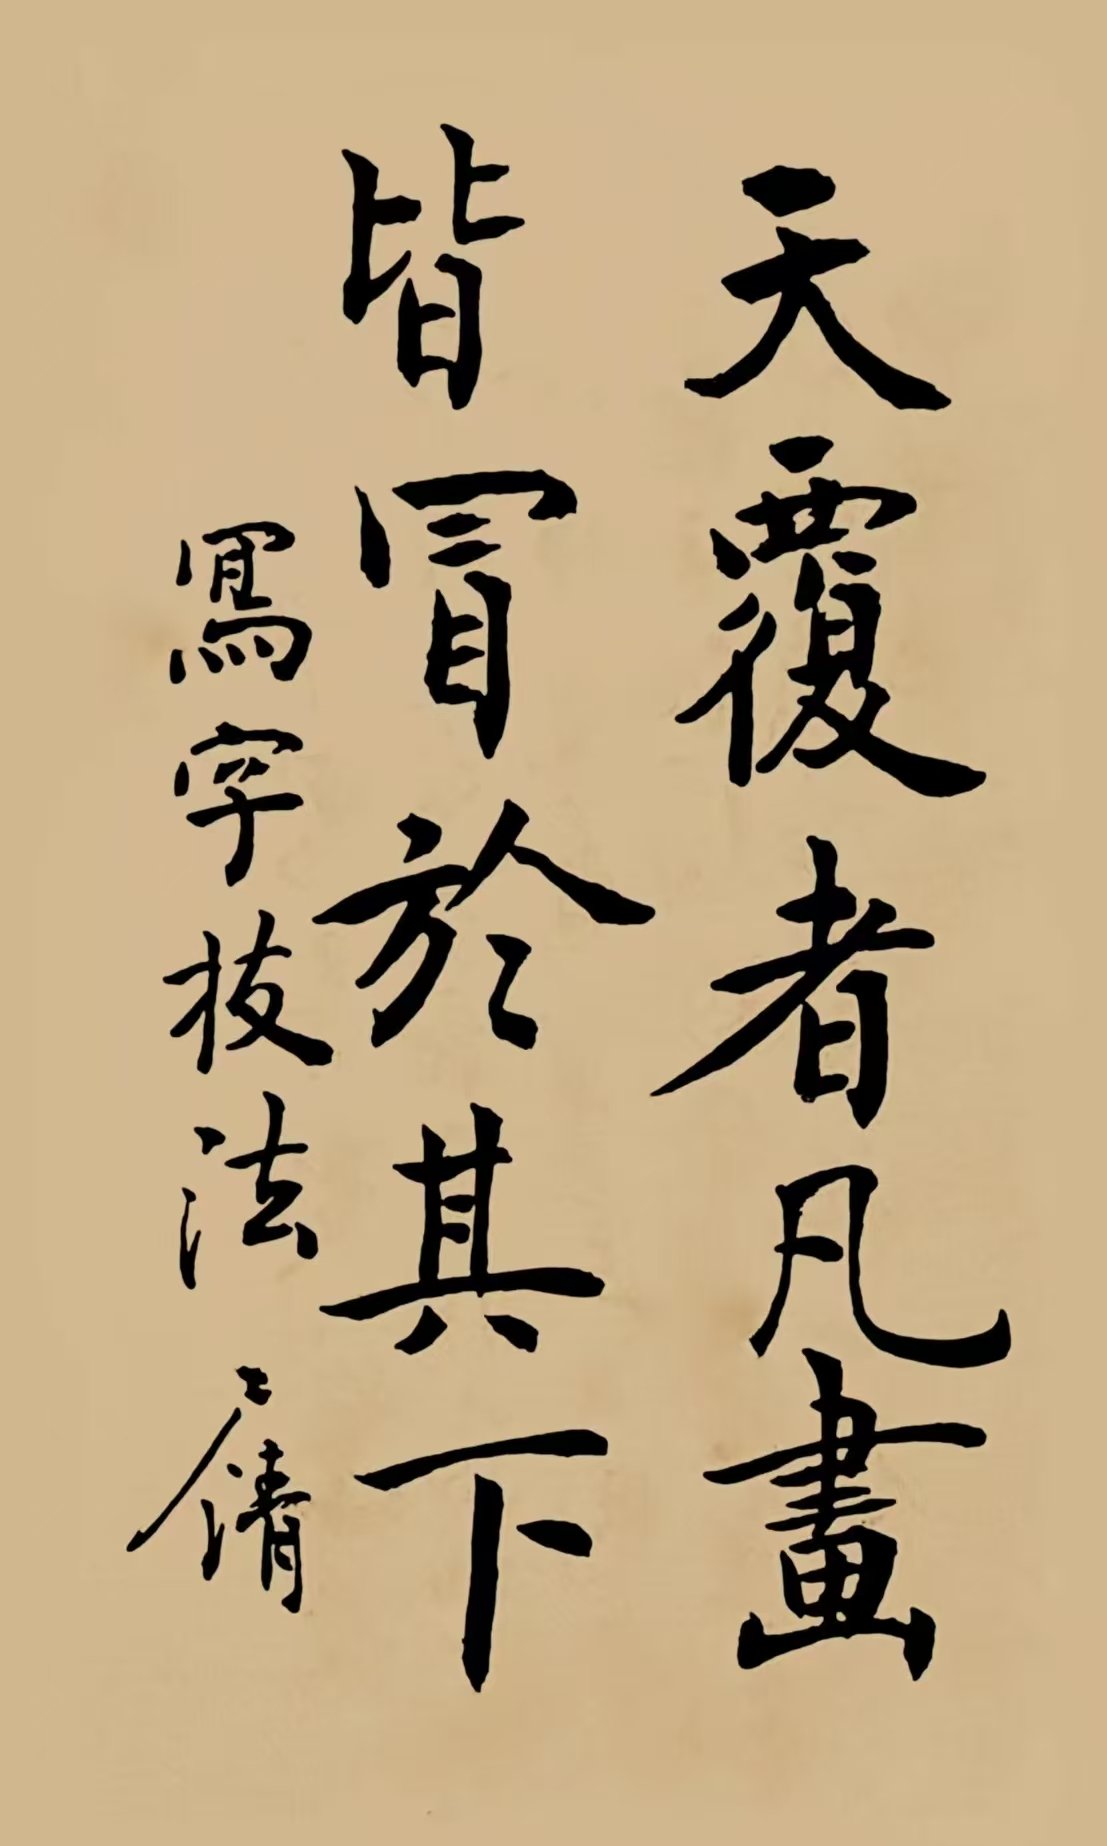 天覆者凡畫
皆冒於其下
寫字技法